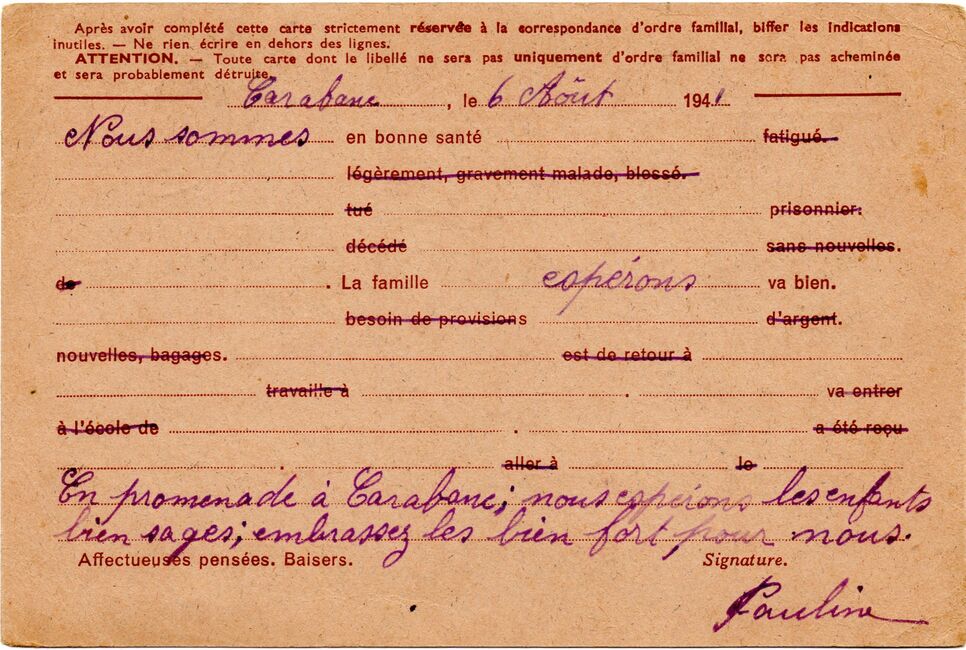 Après avoir complété cette carte strictement réservée à la correspondance d'ordre familial, biffer les indications
inutiles. — Ne rien écrire en dehors des lignes.
ATTENTION. — Toute carte dont le libellé ne sera pas uniquement d'ordre familial ne sera pas acheminée
et sera probablement détruite.
Carabane, le 6 Août 1941
Nous sommes en bonne santé fatigué.
légèrement, gravement malade, blessé.
tué prisonnier.
décédé sans nouvelles.
de . La famille espérons va bien.
besoin de provisions d'argent.
nouvelles, bagages. est de retour à
travaille à . va entrer
à l'école de . a été reçu
. aller à le
En promenade à Carabane; nous espérons les enfants
bien sages; embrassez les bien fort pour nous.
Affectueuses pensées. Baisers. Signature.
Pauline